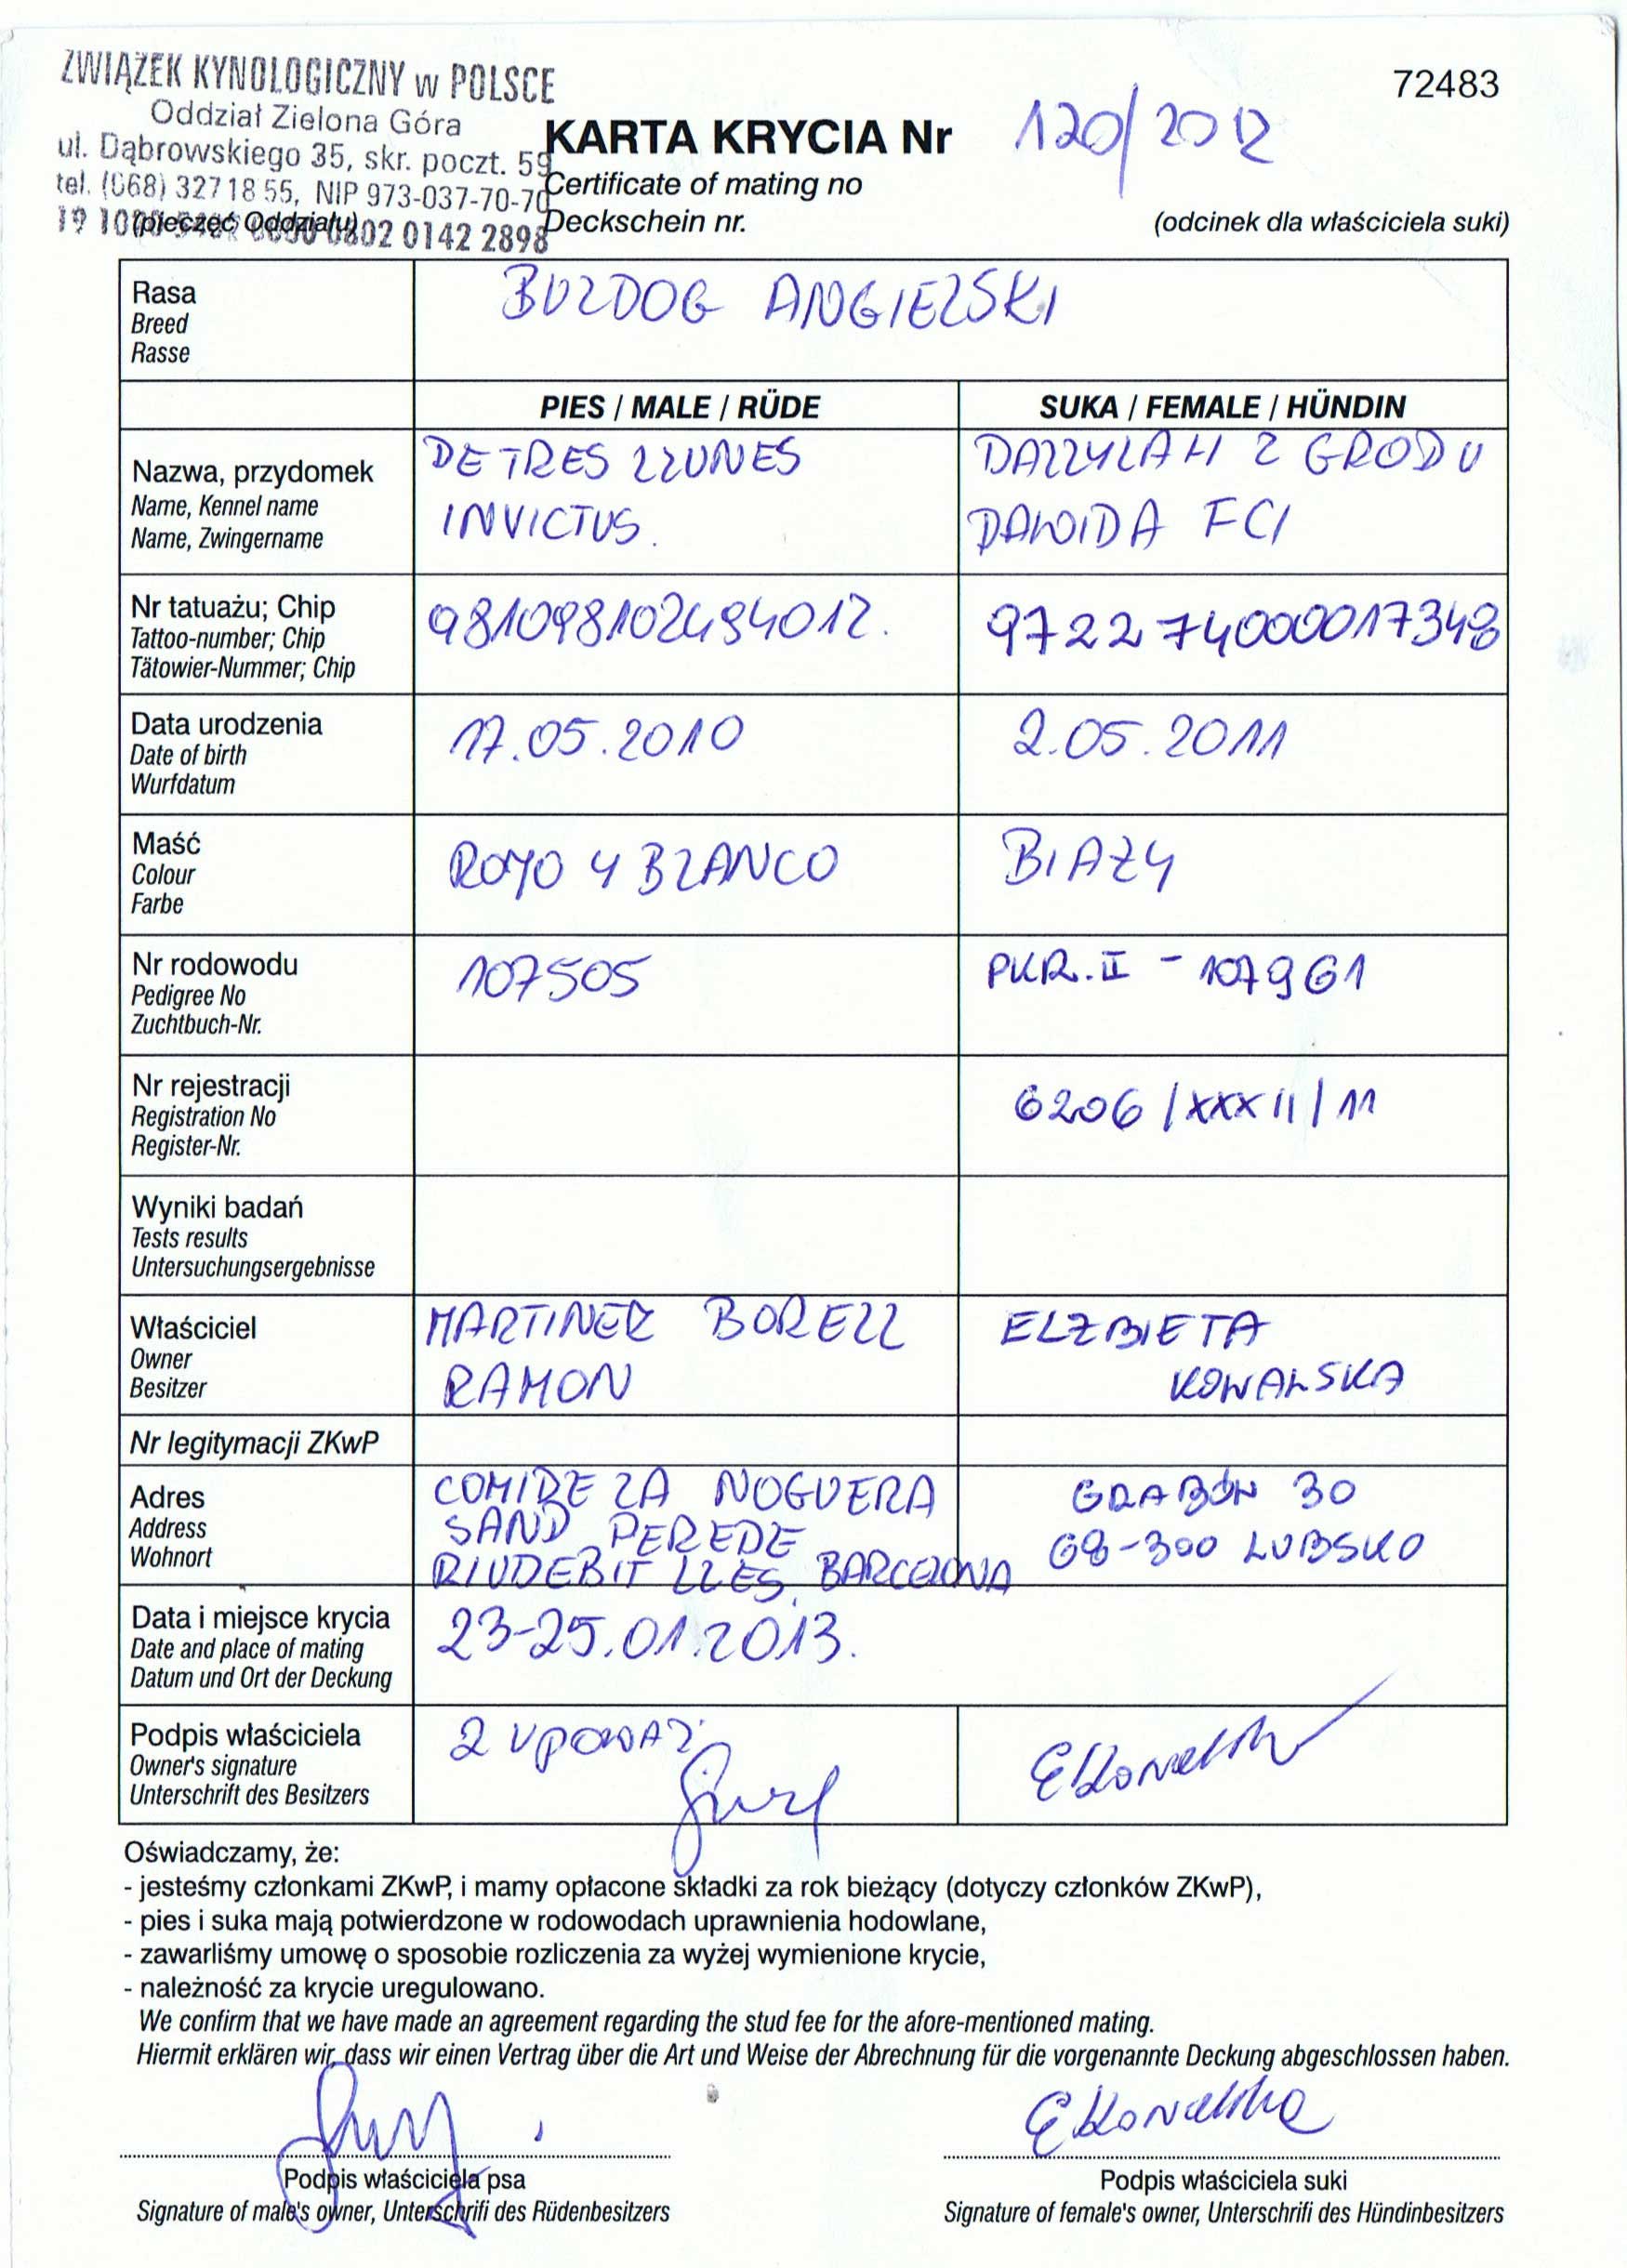 ZWIĄZEK KYNOLOGICZNY w POLSCE
Oddział Zielona Góra
ul. Dąbrowskiego 35, skr. poczt. 59
tel. (068) 327 18 55, NIP 973-037-70-70
0802 0142 2898
(pieczęć Oddziału)
72483
KARTA KRYCIA Nr 120/2012
Certificate of mating no
Deckschein nr.
(odcinek dla właściciela suki)
Rasa
Breed
Rasse
BULDOG ANGIELSKI
PIES / MALE / RÜDE
SUKA / FEMALE / HÜNDIN
Nazwa, przydomek
Name, Kennel name
Name, Zwingername
DE TRES LLUNES
INVICTUS.
DAZZYLAH Z GRODU
DAWIDA FCI
Nr tatuażu; Chip
Tattoo-number; Chip
Tätowier-Nummer; Chip
981098102494012.
972274000017348
Data urodzenia
Date of birth
Wurfdatum
17.05.2010
2.05.2011
Maść
Colour
Farbe
ROYO Y BLANCO
BIAŁY
Nr rodowodu
Pedigree No
Zuchtbuch-Nr.
107505
PKR.II - 107961
Nr rejestracji
Registration No
Register-Nr.
6206/XXXII/11
Wyniki badań
Tests results
Untersuchungsergebnisse
Właściciel
Owner
Besitzer
MARTINEZ BORELL
RAMON
ELŻBIETA
KOWALSKA
Nr legitymacji ZKwP
Adres
Address
Wohnort
COMI DE LA NOGUERA
SAND PEREDE
RIUDEBIT LLES, BARCELONA
GRABÓW 30
68-300 LUBSKO
Data i miejsce krycia
Date and place of mating
Datum und Ort der Deckung
23-25.01.2013.
Podpis właściciela
Owner's signature
Unterschrift des Besitzers
Z UPOWAŻ.
EKowalska
Oświadczamy, że:
- jesteśmy członkami ZKwP, i mamy opłacone składki za rok bieżący (dotyczy członków ZKwP),
- pies i suka mają potwierdzone w rodowodach uprawnienia hodowlane,
- zawarliśmy umowę o sposobie rozliczenia za wyżej wymienione krycie,
- należność za krycie uregulowano.
We confirm that we have made an agreement regarding the stud fee for the afore-mentioned mating.
Hiermit erklären wir, dass wir einen Vertrag über die Art und Weise der Abrechnung für die vorgenannte Deckung abgeschlossen haben.
EKowalska
Podpis właściciela psa
Signature of male's owner, Unterschrifi des Rüdenbesitzers
Podpis właściciela suki
Signature of female's owner, Unterschrifi des Hündinbesitzers